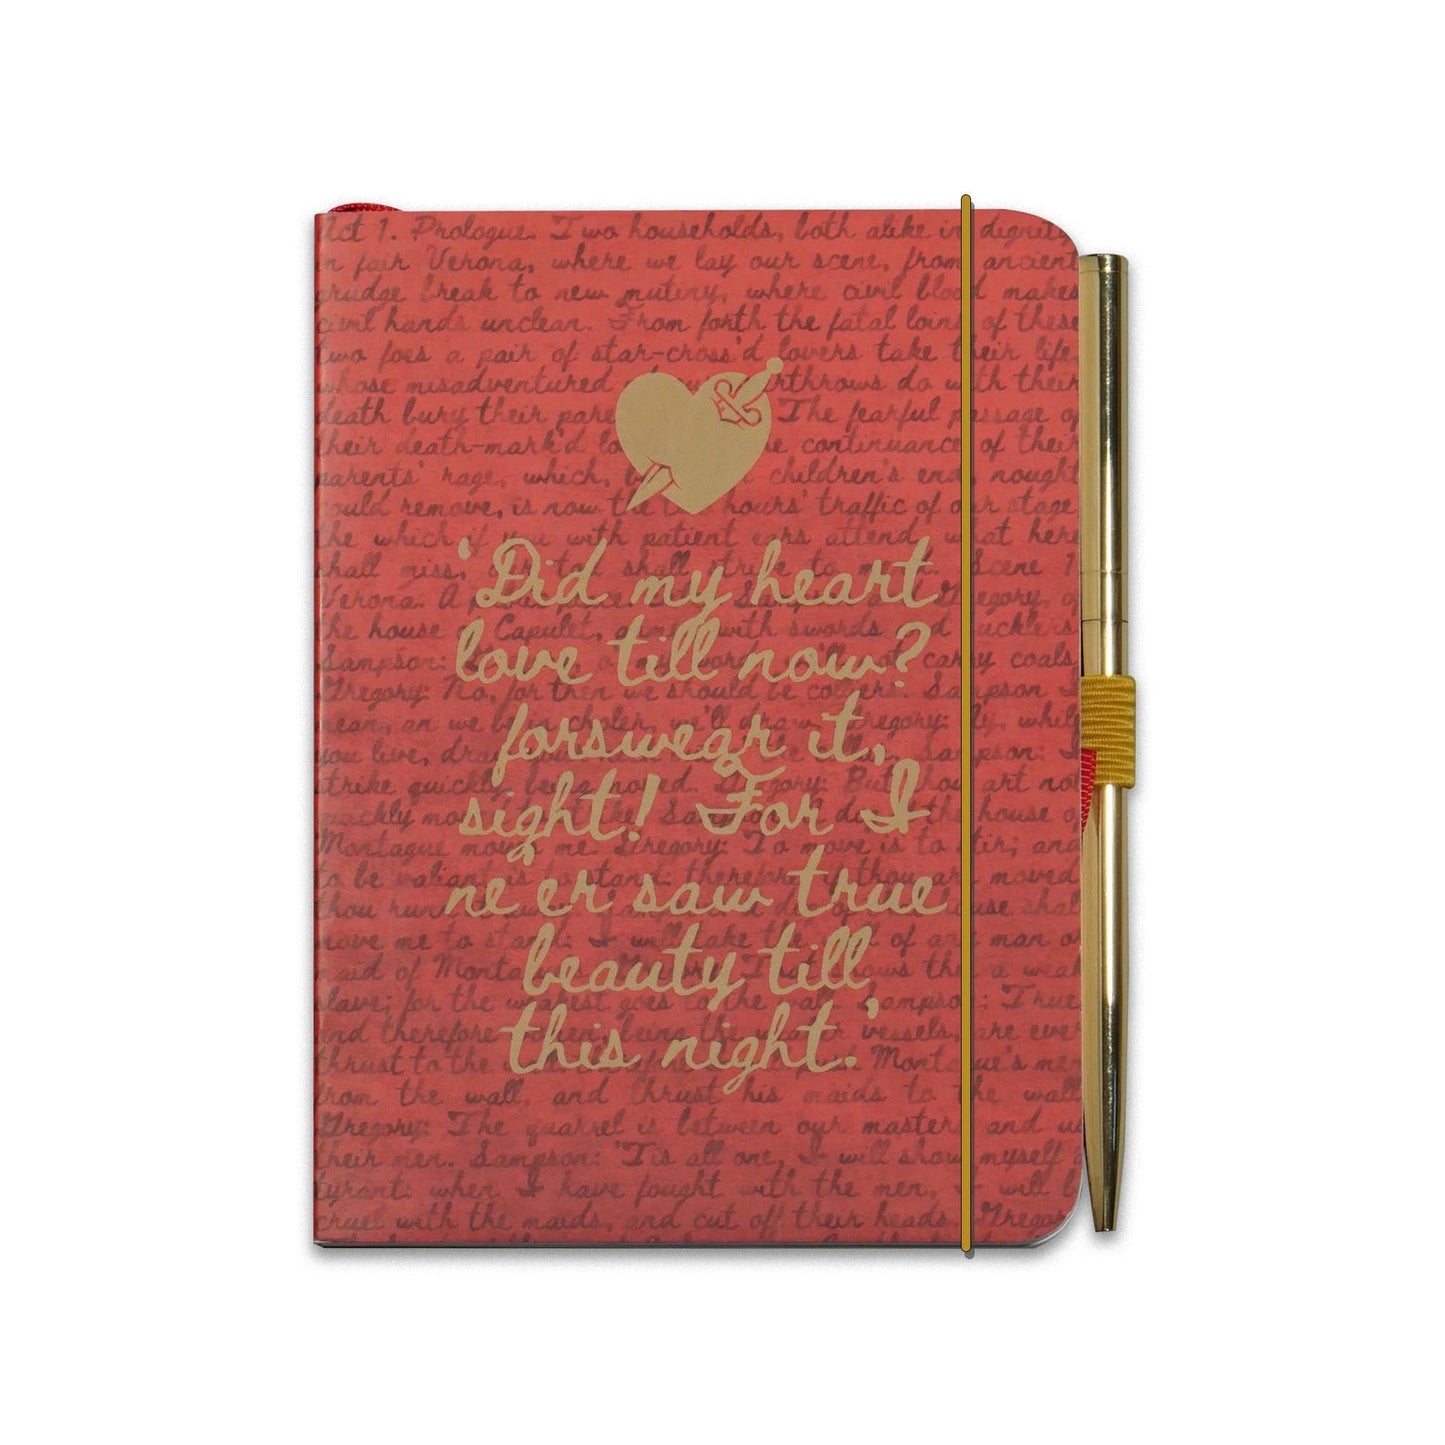 Act 1. Prologue. Two households, both alike in dignity,
in fair Verona, where we lay our scene, from ancient
grudge break to new mutiny, where civil blood makes
civil hands unclean. From forth the fatal loins of these
two foes a pair of star-cross'd lovers take their life
whose misadventured do with their
death bury their The fearful passage of
their death-mark'd continuance of their
parents' rage, which, children's end, nought
could remove, is now the hours' traffic of our stage
the which if you with patient ears attend, what here
shall miss, our toil shall strive to Scene 1
'Did my heart
Verona. A Gregory, of
the house Capulet, with swords bucklers
love till now?
Sampson: carry coals
Gregory: No, for then we should be colliers. Sampson I
mean, an we be in choler, we'll draw. Gregory: Ay, while
forswear it,
you live, Sampson: I
strike quickly being moved. Gregory: But thou art not
sight! For I
quickly Sampson: house of
Montague moves me. Gregory: To move is to stir; and
to be valiant is to stand: therefore, if thou art moved
ne'er saw true
thou house shall
move me to stand: I will take the of any man or
maid of Montague's That shows thee a weak
beauty till
slave; for the weakest goes to the wall. Sampson: True
and therefore being the weaker vessels, are ever
this night.'
thrust to the Montague's men
from the wall, and thrust his maids to the wall
Gregory: The quarrel is between our masters and us
their men. Sampson: 'Tis all one, I will show myself a
tyrant: when I have fought with the men, I will b
cruel with the maids, and cut off their heads. Gregor